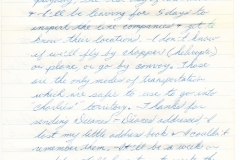 & I'll be leaving for 5 days to
inspect the line companies & get to
know their locations. I don't know
if we'll fly by chopper (helicopter)
or plane, or go by convoy. Those
are the only modes of transportation
which are safe to use to go into
"charlies" territory. Thanks for
sending Dianne & Diane's addresses. I
lost my little address book & couldn't
remember them. It'll be a week or